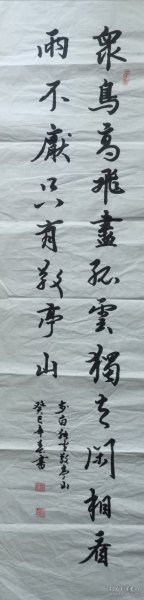 衆鳥高飛盡孤雲獨去閑相看
兩不厭只有敬亭山
李白獨坐敬亭山
癸巳年春書